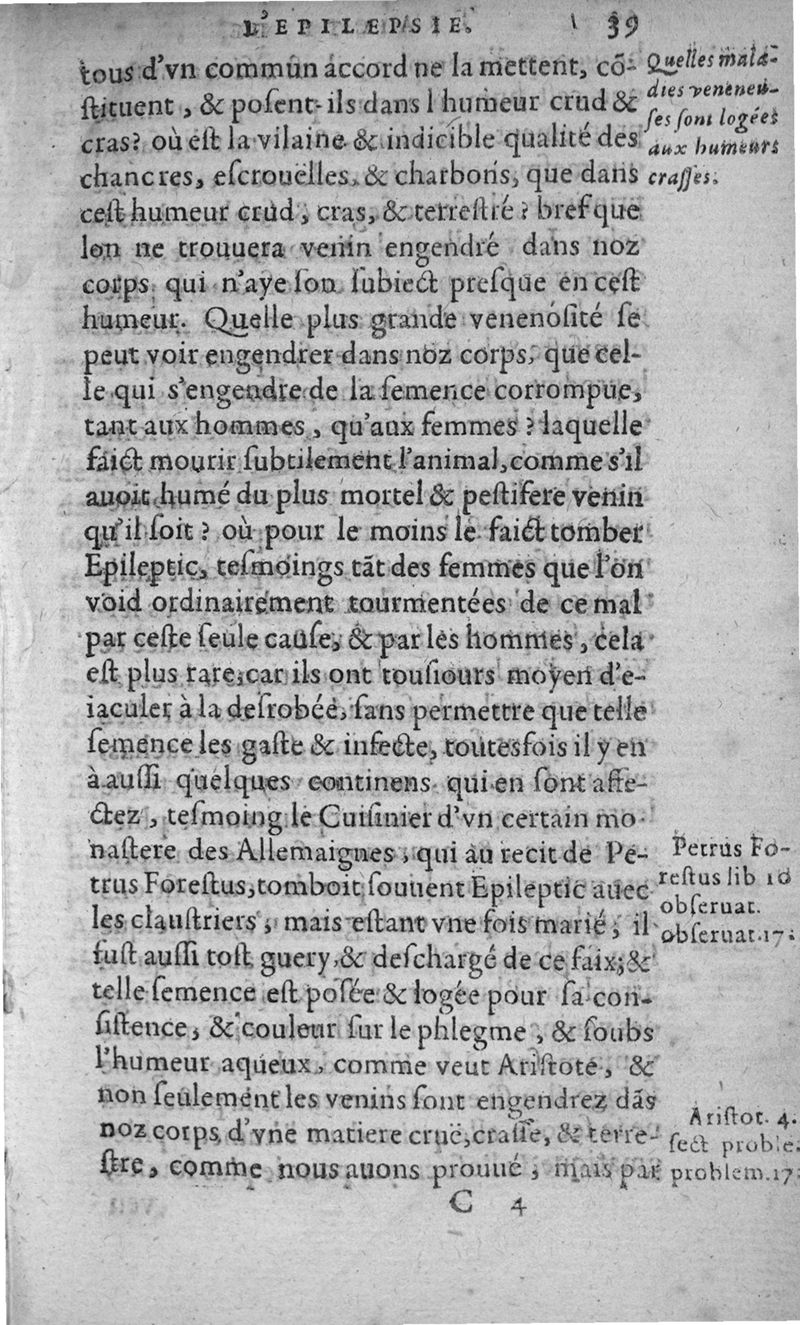 L'EPILEPSIE. 39
tous d'vn commun accord ne la mettent, cõ-
ſtituent, & poſent-ils dans l humeur crud &
cras? où eſt la vilaine & indicible qualité des
chancres, eſcrouëlles, & charbons, que dans
ceſt humeur crud, cras, & terreſtre? bref que
lon ne trouuera venin engendré dans noz
corps qui n'aye ſon ſubiect preſque en ceſt
humeur. Quelle plus grande venenoſité ſe
peut voir engendrer dans noz corps, que cel-
le qui s'engendre de la ſemence corrompue,
tant aux hommes, qu'aux femmes? laquelle
faict mourir ſubtilement l'animal, comme s'il
auoit humé du plus mortel & peſtifere venin
qu'il ſoit? où pour le moins le faict tomber
Epileptic, teſmoings tãt des femmes que l'on
void ordinairement tourmentées de ce mal
par ceſte ſeule cauſe, & par les hommes, cela
eſt plus rare, car ils ont touſiours moyen d'e-
iaculer à la deſrobée, ſans permettre que telle
ſemence les gaſte & infecte, toutesfois il y en
à auſſi quelques continens qui en ſont affe-
ctez, teſmoing le Cuiſinier d'vn certain mo-
naſtere des Allemaignes, qui au recit de Pe-
trus Foreſtus, tomboit ſouuent Epileptic auec
les clauſtriers, mais eſtant vne fois marié, il
fuſt auſſi toſt guery, & deſchargé de ce faix; &
telle ſemence eſt poſée & logée pour ſa con-
ſiſtence, & couleur ſur le phlegme, & ſoubs
l'humeur aqueux, comme veut Ariſtote, &
non ſeulement les venins ſont engendrez dãs
noz corps d'vne matiere cruë, craſſe, & terre-
ſtre, comme nous auons prouué, mais par
C 4
Quelles mala-
dies veneneu-
ſes ſont logées
aux humeurs
craſſes.
Petrus Fo-
reſtus lib 10
obſeruat.
obſeruat.17.
Ariſtot. 4.
ſect proble.
problem.17.